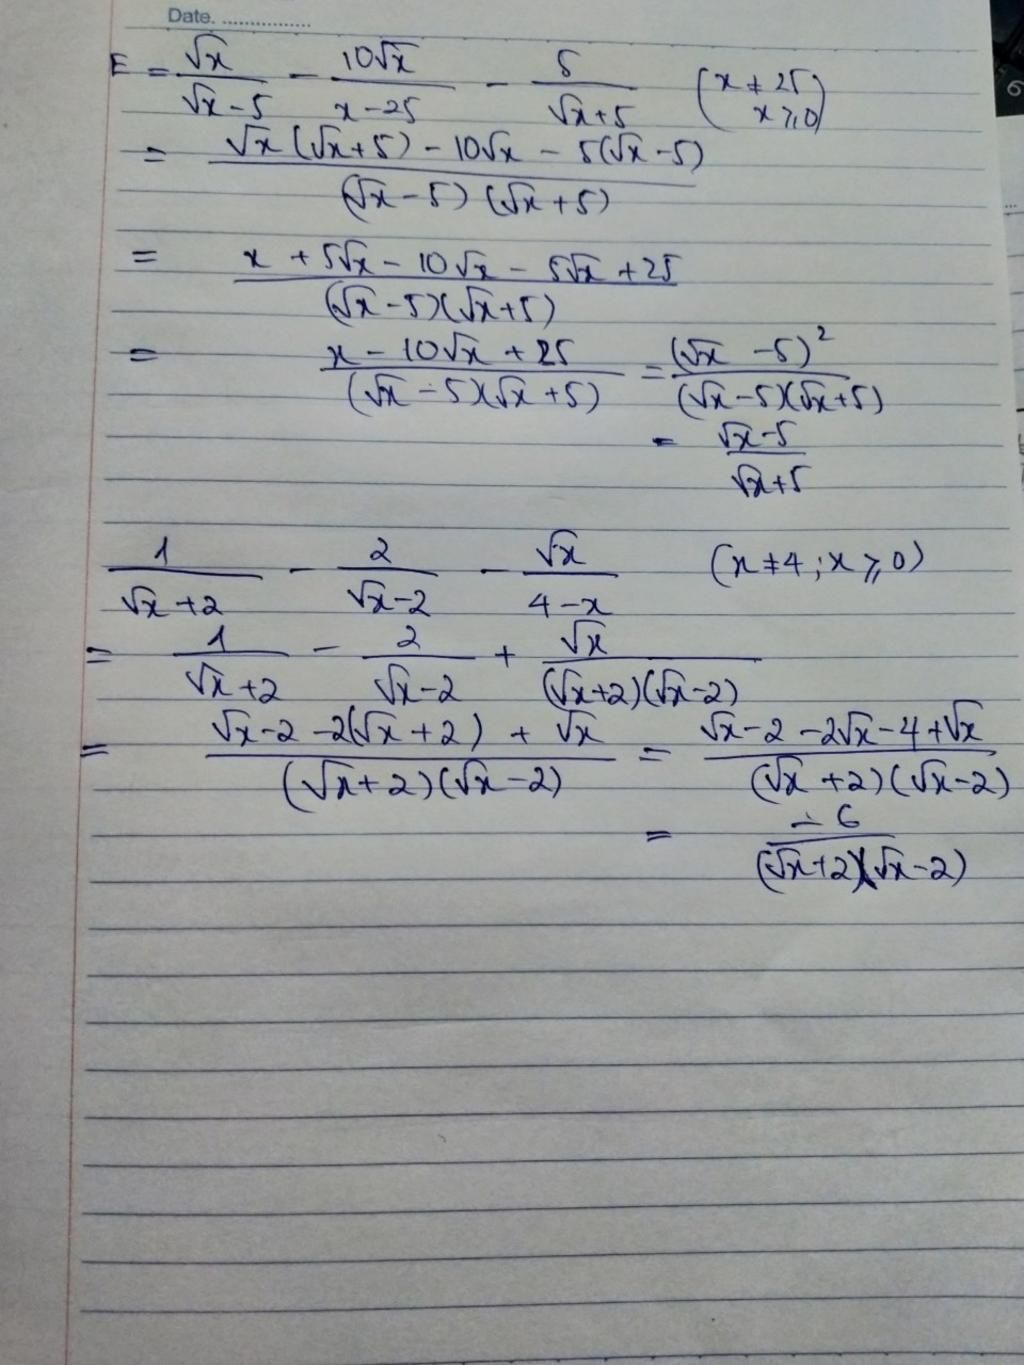 Date. ...............
E = √x/(√x-5) - 10√x/(x-25) - 5/(√x+5) (x ≠ 25 x ⩾ 0)
= (√x(√x+5) - 10√x - 5(√x-5))/((√x-5)(√x+5))
= (x + 5√x - 10√x - 5√x + 25)/((√x-5)(√x+5))
= (x - 10√x + 25)/((√x-5)(√x+5)) = (√x-5)²/((√x-5)(√x+5))
= (√x-5)/(√x+5)
1/(√x+2) - 2/(√x-2) - √x/(4-x) (x ≠ 4 ; x ⩾ 0)
= 1/(√x+2) - 2/(√x-2) + √x/((√x+2)(√x-2))
= (√x-2-2(√x+2)+√x)/((√x+2)(√x-2)) = (√x-2-2√x-4+√x)/((√x+2)(√x-2))
= -6/((√x+2)(√x-2))